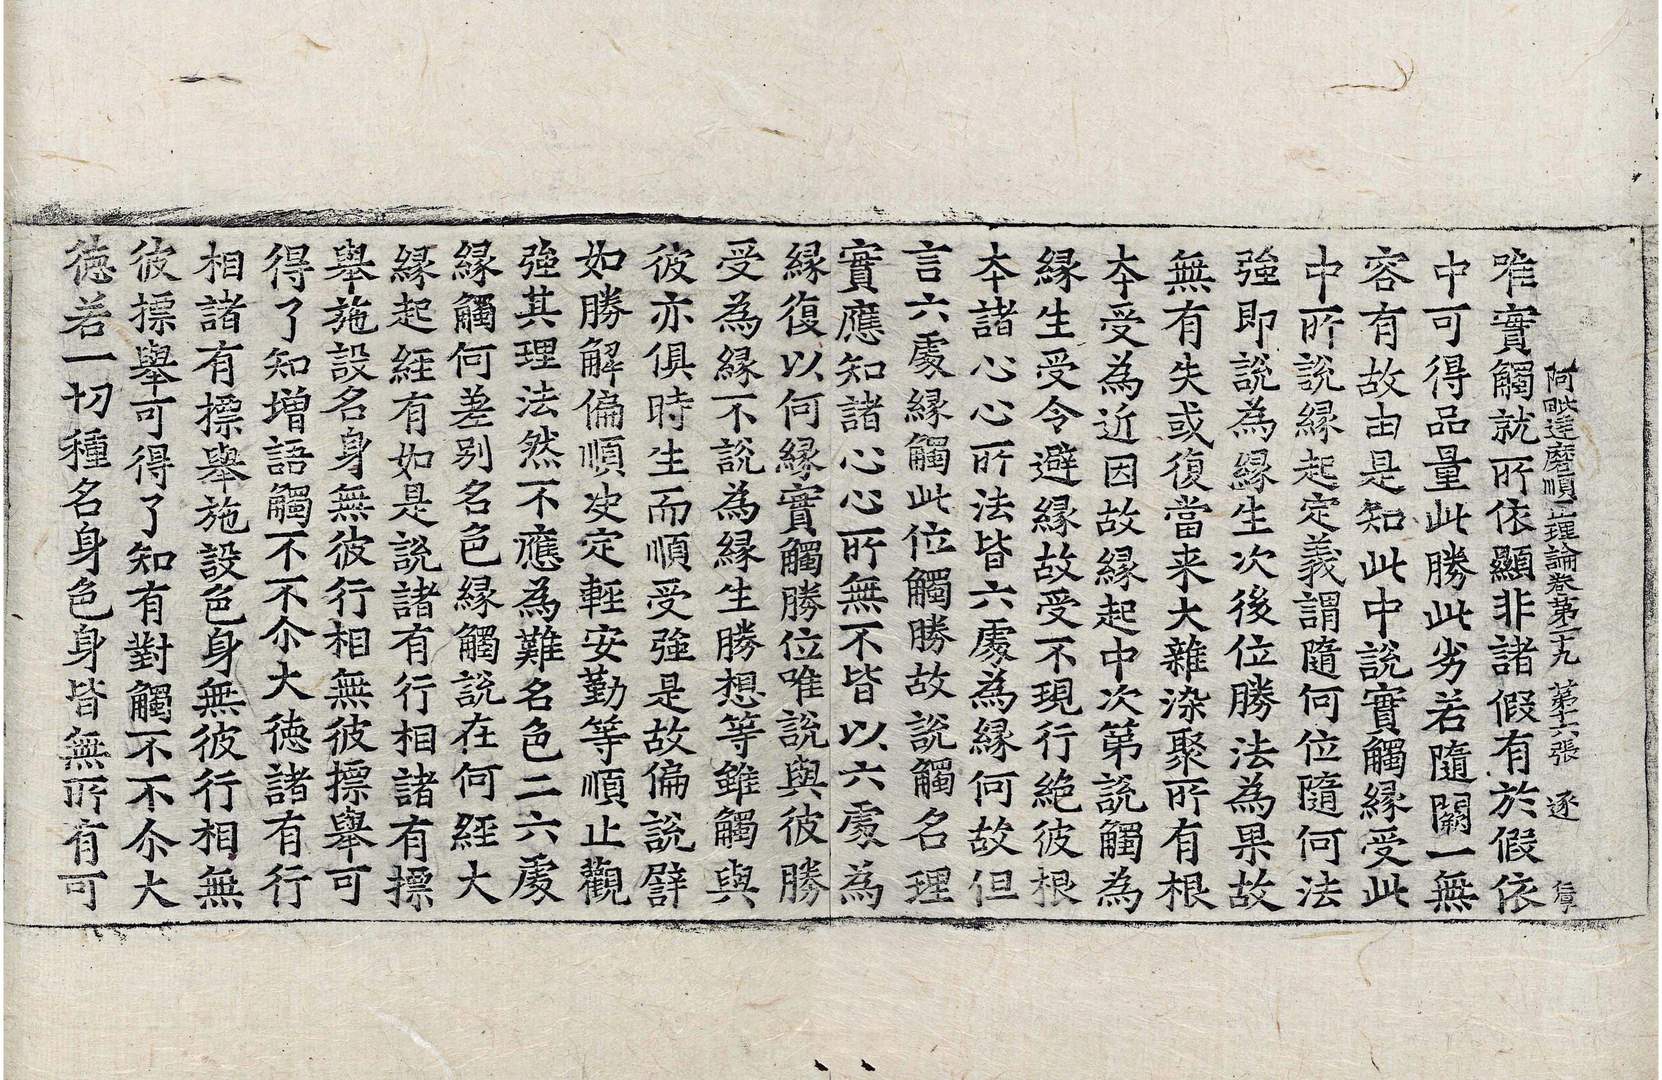 阿毗達磨順正理論卷第二十九 第十六張 逐
唯實觸就所依顯非諸假有於假依
中可得品量此勝此劣若隨闕一無
容有故由是知此中說實觸緣受此
中所說緣起定義謂隨何位隨何法
強即說為緣生次後位勝法為果故
無有失或復當来大雜染聚所有根
本受為近因故緣起中次第說觸為
緣生受令避緣故受不現行絕彼根
本諸心心所法皆六處為緣何故但
言六處緣觸此位觸勝故說觸名理
實應知諸心心所無不皆以六處為
緣復以何緣實觸勝位唯說與彼勝
受為緣不說為緣生勝想等雖觸與
彼亦俱時生而順受強是故偏說譬
如勝解偏順決定輕安勤等順止觀
強其理法然不應為難名色二六處
緣觸何差別名色緣觸說在何經大
緣起經有如是說諸有行相諸有摽
舉施設名身無彼行相無彼摽舉可
得了知增語觸不不尒大德諸有行
相諸有摽舉施設色身無彼行相無
彼摽舉可得了知有對觸不不尒大
德若一切種名身色身皆無所有可